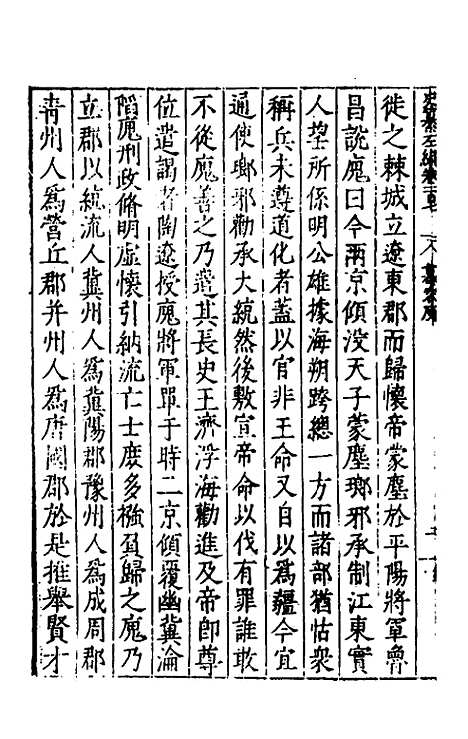 徙之棘城立遼東郡而歸懷帝蒙塵於平陽將軍魯
昌說廆曰今兩京傾沒天子蒙塵瑯邪承制江東實
人望所係明公雄據海朔跨總一方而諸部猶怙衆
稱兵未遵道化者蓋以官非王命又自以爲彊今宜
通使瑯邪勸承大統然後敷宣帝命以伐有罪誰敢
不從廆善之乃遣其長史王濟浮海勸進及帝即尊
位遣謁者陶遼授廆將軍單于時二京傾覆幽冀淪
陷廆刑政脩明虛懷引納流亡士庶多襁負歸之廆乃
立郡以統流人冀州人爲冀陽郡豫州人爲成周郡
青州人爲營丘郡并州人爲唐國郡於是推舉賢才